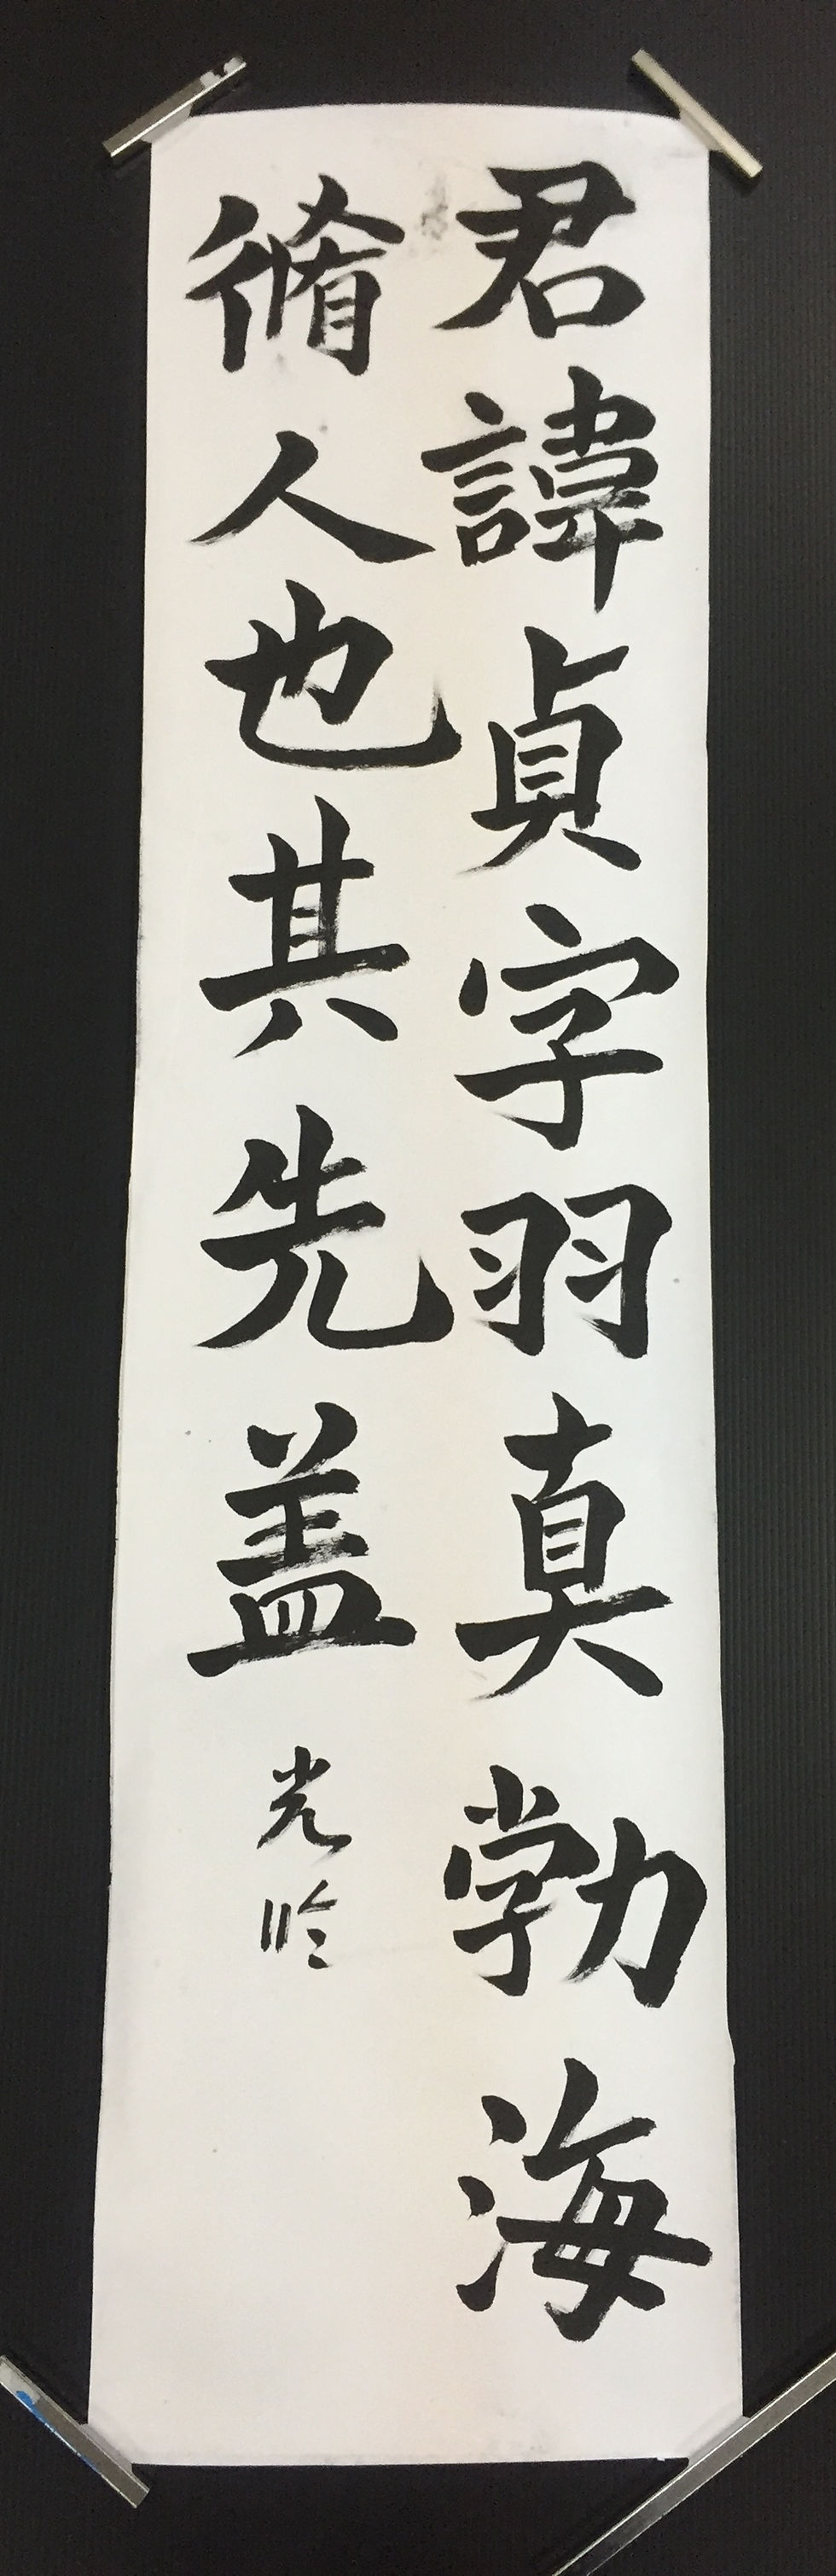 君諱貞字羽真勃海
脩人也其先蓋
光